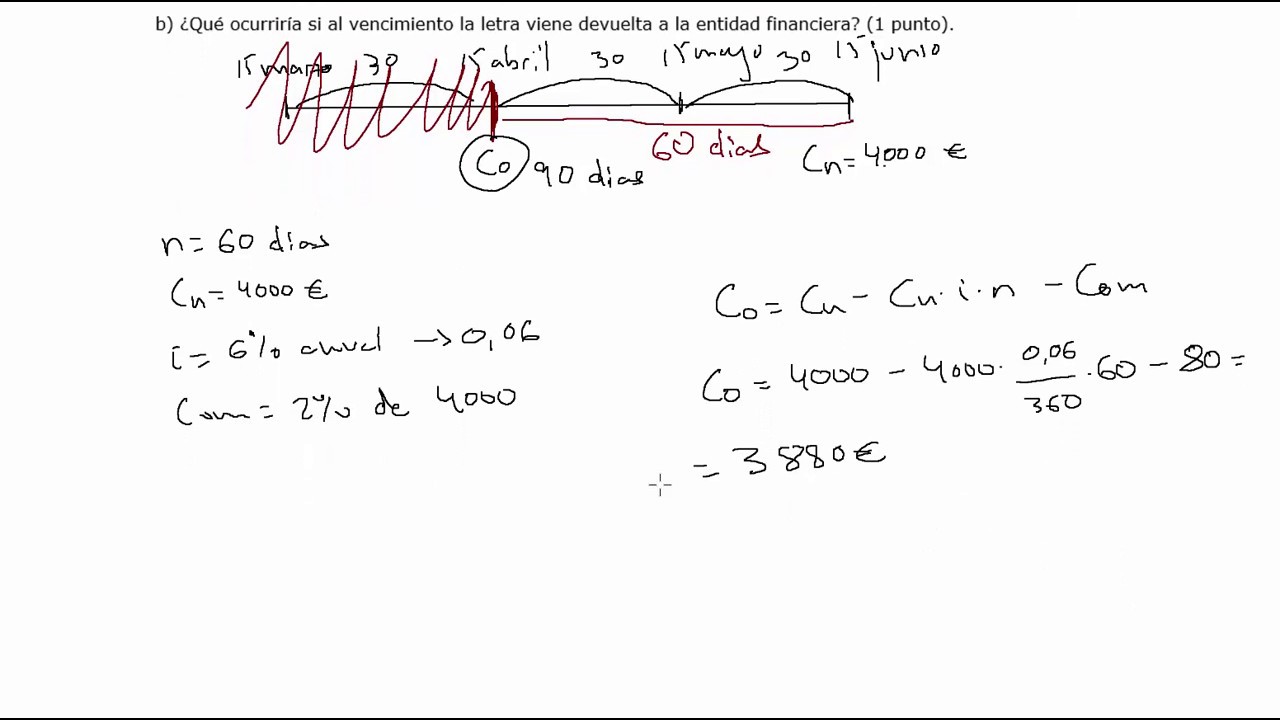 b) ¿Qué ocurriría si al vencimiento la letra viene devuelta a la entidad financiera? (1 punto).
15 marzo 30 15 abril 30 15 mayo 30 15 junio
60 dias
Co 90 dias Cn = 4000 €
n = 60 dias
Cn = 4000 €
i = 6% anual → 0,06
Com = 2% de 4000
Co = Cn - Cn · i · n - Com
Co = 4000 - 4000 · 0,06/360 · 60 - 80 =
= 3880 €